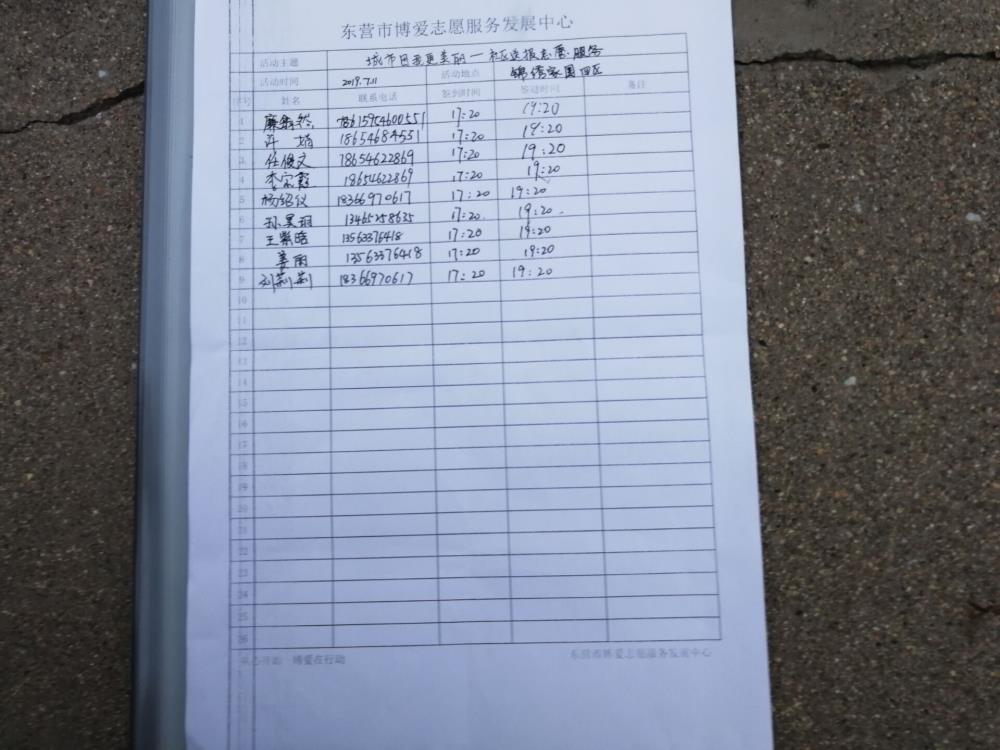 东营市博爱志愿服务发展中心
活动主题 城市因我更美丽一社区送报志愿服务
活动时间 2019.7.11 活动地点 锦绣家园四区
序号 姓名 联系电话 签到时间 签退时间 备注
1 17:20 19:20
2 许 18654684531 17:20 19:20
3 任俊文 18654622869 17:20 19:20
4 李宗霞 18654622869 17:20 19:20
5 杨绍仪 18366970617 17:20 19:20
6 孙昊玥 13465258635 17:20 19:20
7 王紫晗 13563376418 17:20 19:20
8 姜丽 13563376418 17:20 19:20
9 刘莉莉 18366970617 17:20 19:20
10
11
12
13
14
15
16
17
18
19
20
21
22
23
24
25
26
博爱在行动 东营市博爱志愿服务发展中心